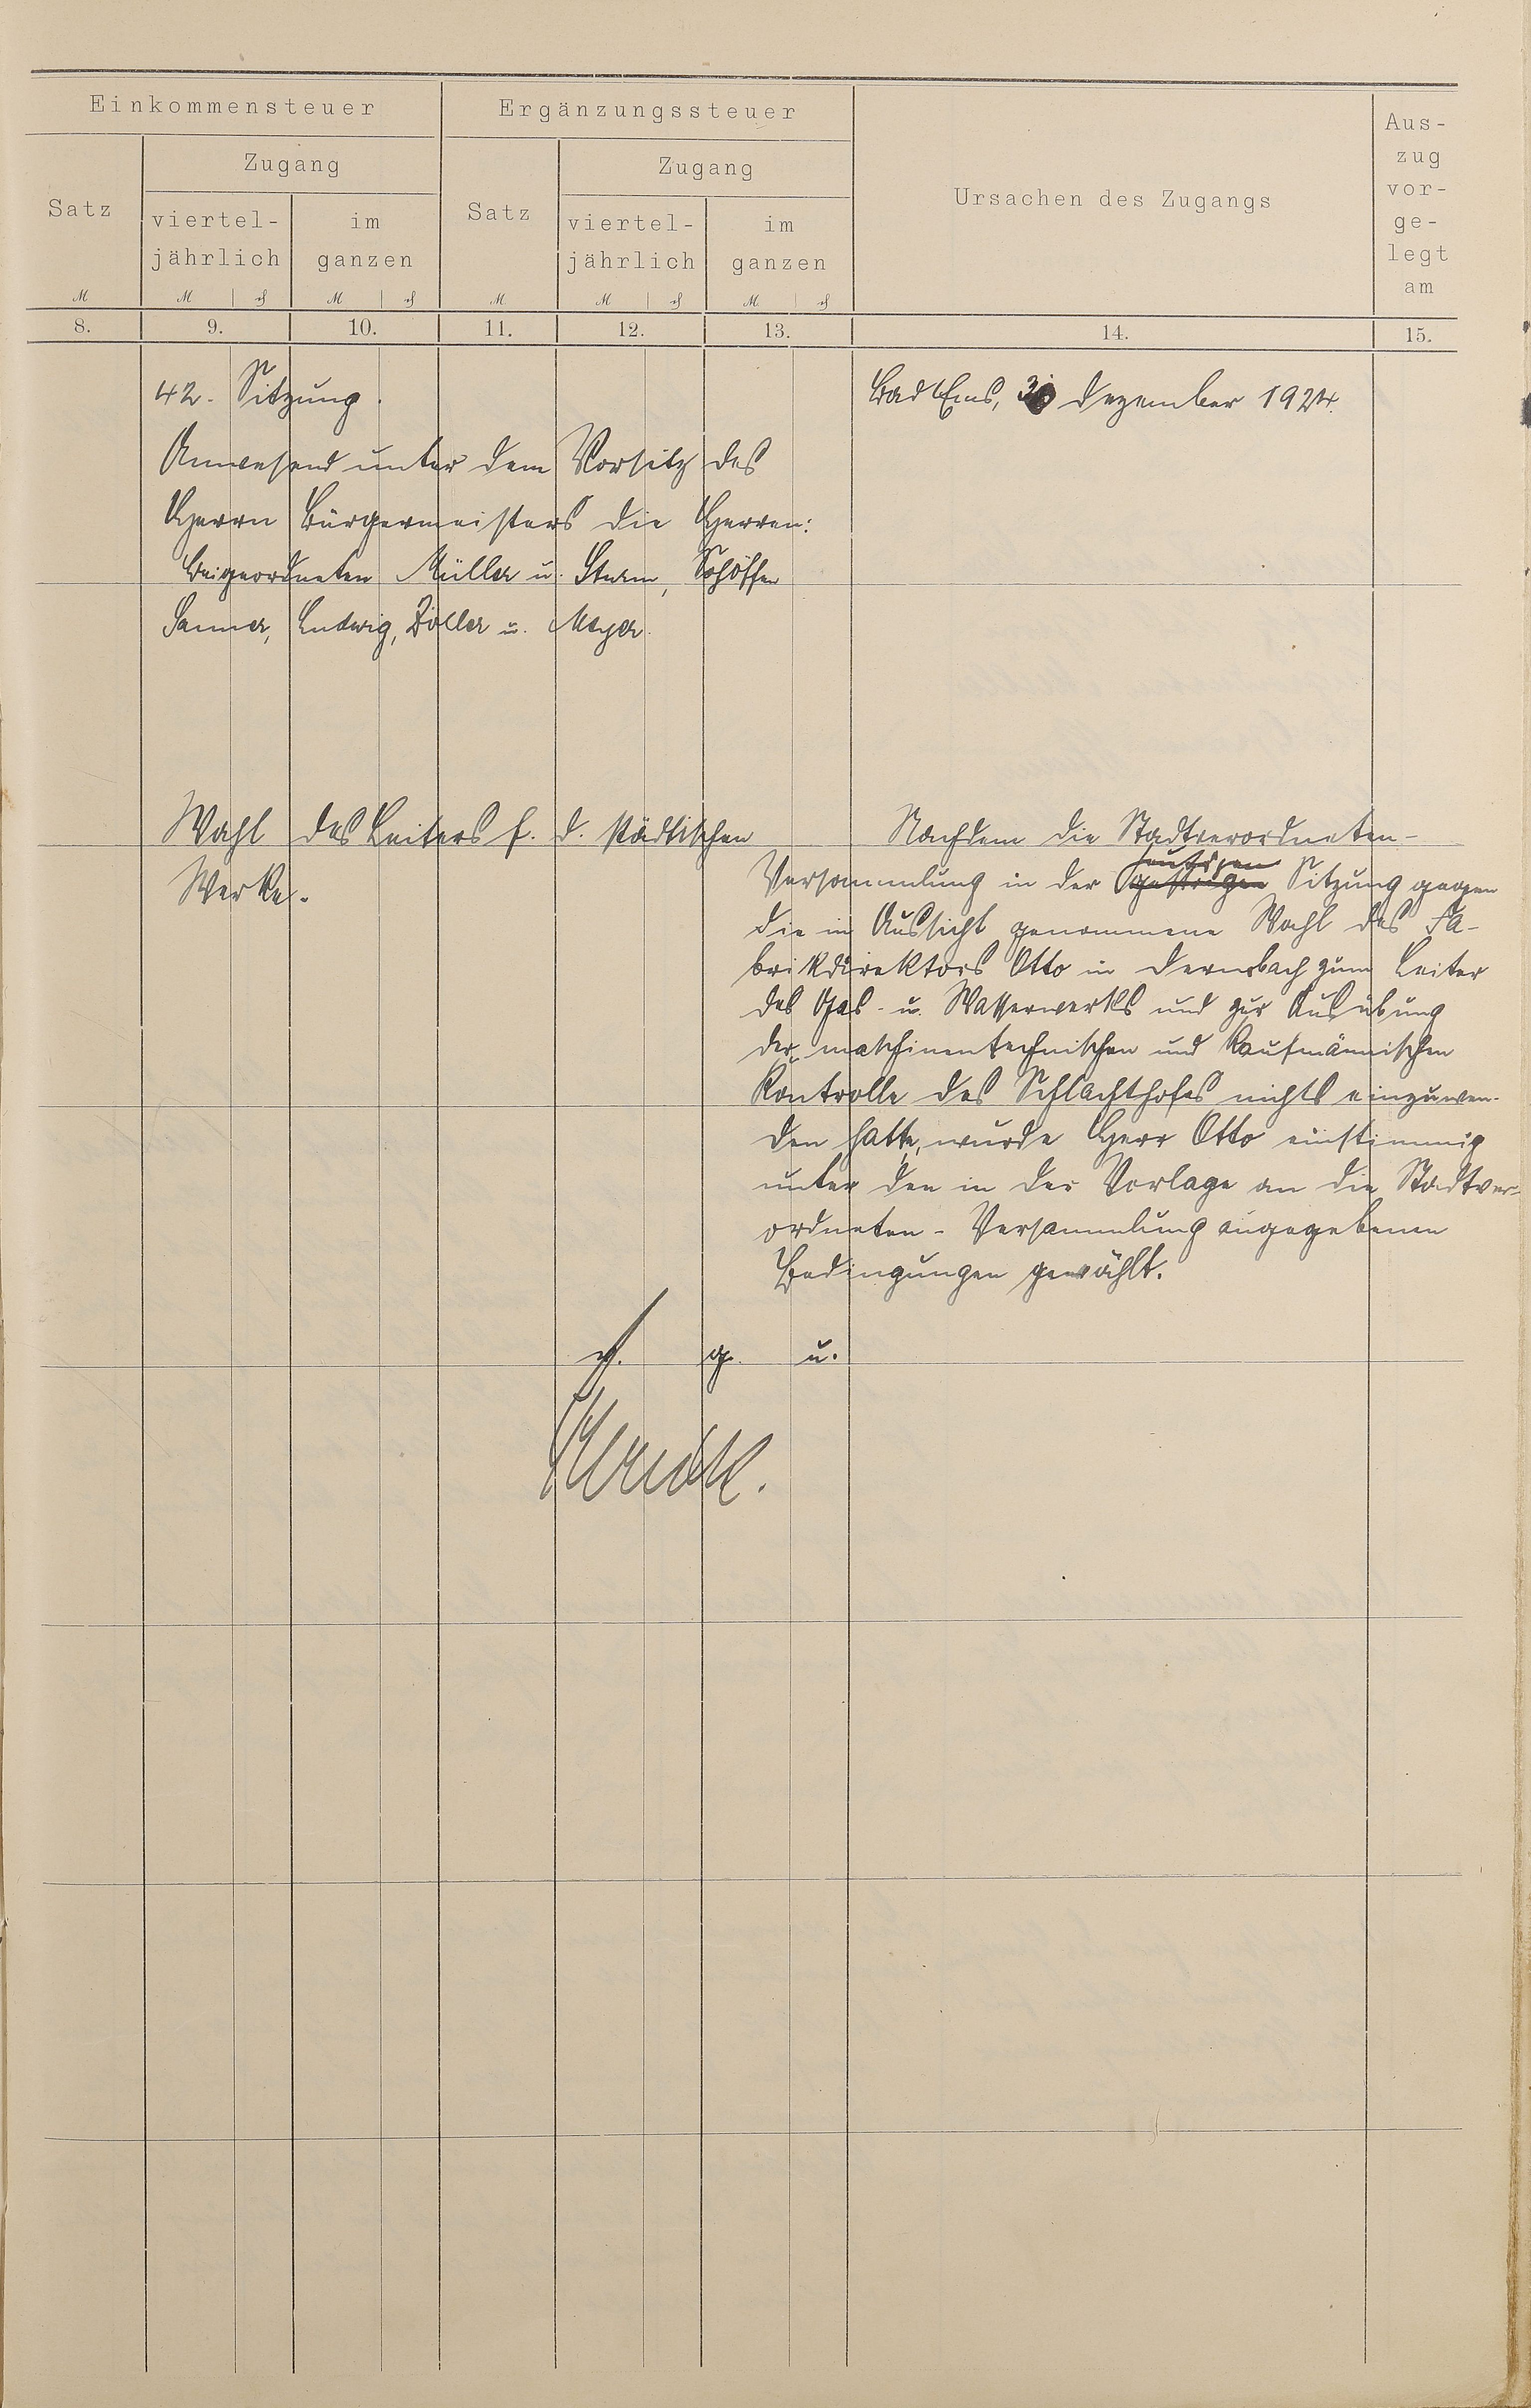 Einkommensteuer
Ergänzungssteuer
Ursachen des Zugangs
Aus-
zug
vor-
ge-
legt
am
Satz
Zugang
viertel-
jährlich
im
ganzen
Satz
Zugang
viertel-
jährlich
im
ganzen
8. 9. 10. 11. 12. 13. 14. 15.
42. Sitzung.
Bad Ems, Dezember 1924.
Anwesend unter dem Vorsitz des
Herrn Bürgermeisters die Herren:
Beigeordneten Müller u. Sturm, Schöffen
Sanner, Ludwig, Zöller u. Meyer.
Wahl des Leiters f. d. städtischen
Werke.
Nachdem die Stadtverordneten-
heutigen
Versammlung in der gestrigen Sitzung gegen
die in Aussicht genommene Wahl des Fa-
brikdirektors Otto in Dernbach zum Leiter
des Gas- u. Wasserwerks und zur Ausübung
der maschinentechnischen und kaufmännischen
Kontrolle des Schlachthofes nichts einzuwen-
den hatte, wurde Herr Otto einstimmig
unter den in der Vorlage an die Stadtver-
ordneten-Versammlung angegebenen
Bedingungen gewählt.
v. g. u.